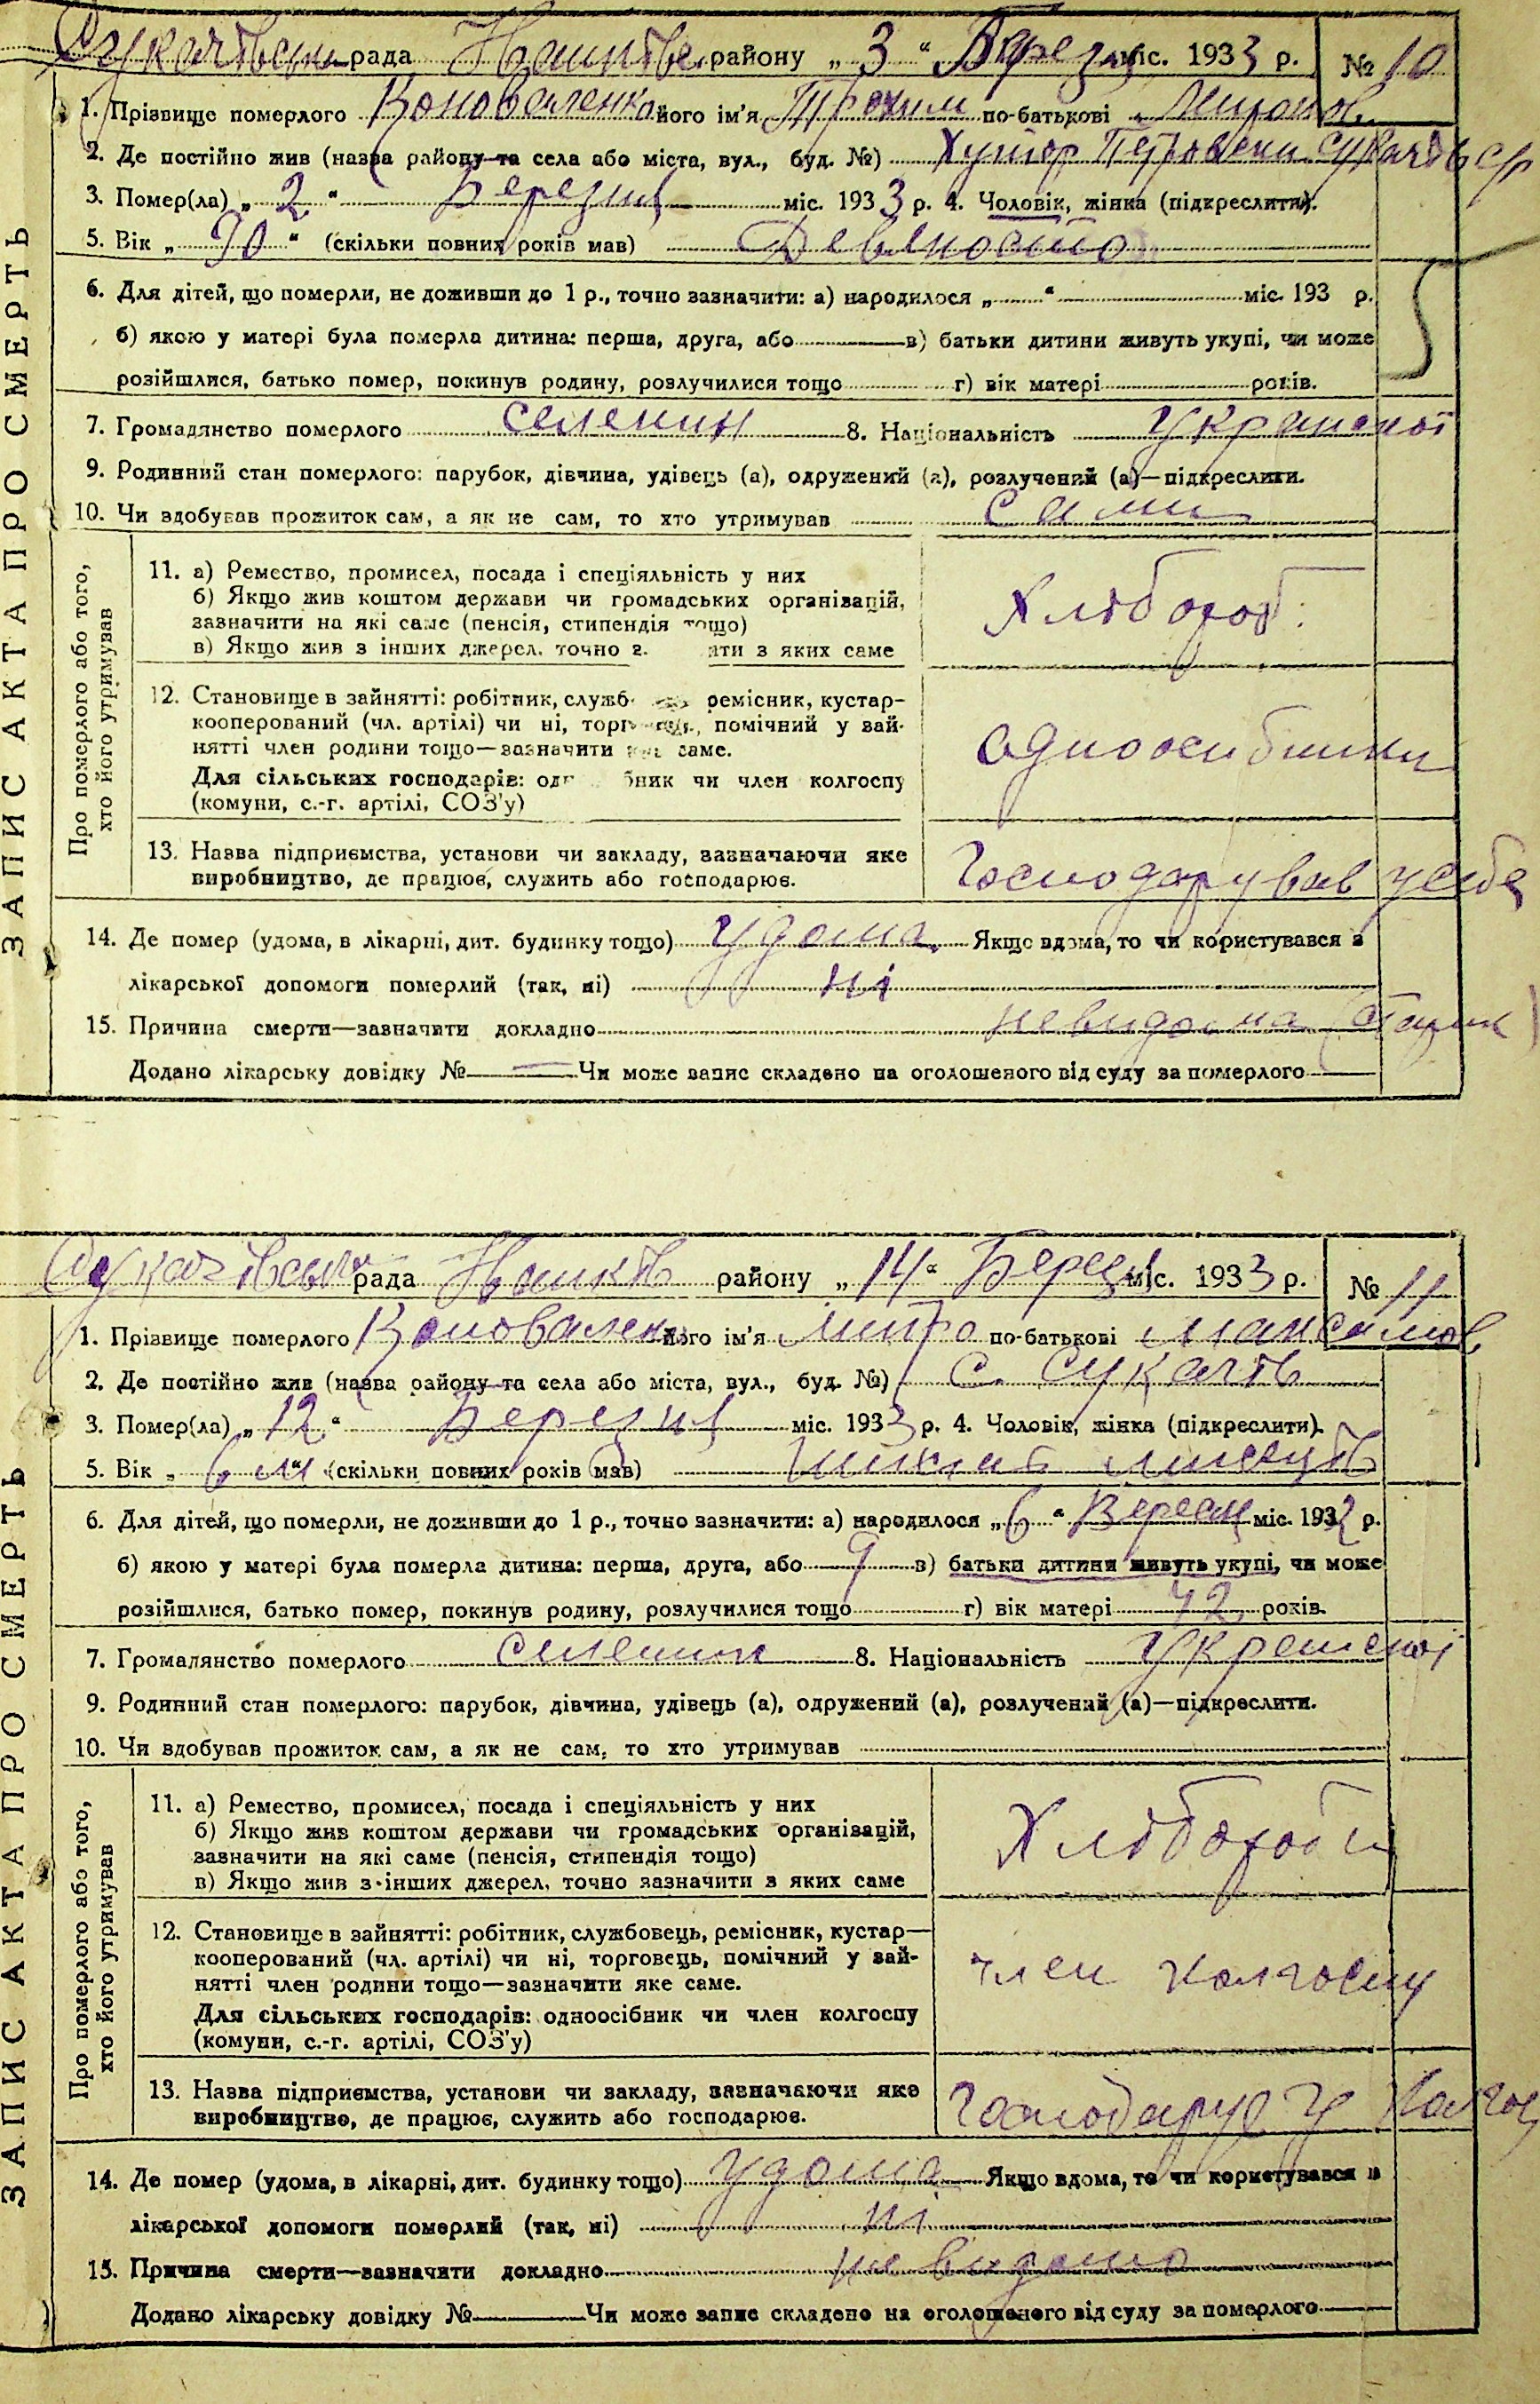 рада району „ 3 “ міс. 1933 р. № 10
1. Прізвище померлого Коноваленко його ім'я Трохим по-батькові Миронов.
2. Де постійно жив (назва району та села або міста, вул., буд. №) Хутор
3. Помер(ла) „ 2 “ Березня міс. 1933 р. 4. Чоловік, жінка (підкреслити).
5. Вік „ 90 “ (скільки повних років мав) Девяносто
6. Для дітей, що померли, не доживши до 1 р., точно зазначити: а) народилося „ “ міс. 193 р.
б) якою у матері була померла дитина: перша, друга, або в) батьки дитини живуть укупі, чи може
розійшлися, батько помер, покинув родину, розлучилися тощо г) вік матері років.
7. Громадянство померлого селенин 8. Національність
9. Родинний стан померлого: парубок, дівчина, удівець (а), одружений (а), розлучений (а)—підкреслити.
10. Чи здобував прожиток сам, а як не сам, то хто утримував сами
ЗАПИС АКТА ПРО СМЕРТЬ
Про померлого або того,
хто його утримував
11. а) Ремество, промисел, посада і спеціяльність у них
б) Якщо жив коштом держави чи громадських організацій,
зазначити на які саме (пенсія, стипендія тощо)
в) Якщо жив з інших джерел, точно з яких саме
Хлібороб
12. Становище в зайнятті: робітник, служб ремісник, кустар-
кооперований (чл. артілі) чи ні, помічний у зай-
нятті член родини тощо—зазначити саме.
Для сільських господарів: бник чи член колгоспу
(комуни, с.-г. артілі, СОЗ'у)
13. Назва підприємства, установи чи закладу, зазначаючи яке
виробництво, де працює, служить або господарює.
Господарував у себе
14. Де помер (удома, в лікарні, дит. будинку тощо) удома. Якщо вдома, то чи користувався з
лікарської допомоги померлий (так, ні) ні
15. Причина смерти—зазначити докладно невидома (Старик)
Додано лікарську довідку № — Чи може запис складено на оголошеного від суду за померлого
рада району „ 14 “ міс. 1933 р. № 11
1. Прізвище померлого Коноваленко його ім'я по-батькові Максимов.
2. Де постійно жив (назва району та села або міста, вул., буд. №) с. Сукачів
3. Помер(ла) „ 12 “ Березня міс. 1933 р. 4. Чоловік, жінка (підкреслити).
5. Вік „ 6 м “ (скільки повних років мав)
6. Для дітей, що померли, не доживши до 1 р., точно зазначити: а) народилося „ 6 “ міс. 1932 р.
б) якою у матері була померла дитина: перша, друга, або 9 в) батьки дитини живуть укупі, чи може
розійшлися, батько помер, покинув родину, розлучилися тощо г) вік матері 42 років.
7. Громадянство померлого 8. Національність
9. Родинний стан померлого: парубок, дівчина, удівець (а), одружений (а), розлучений (а)—підкреслити.
10. Чи здобував прожиток сам, а як не сам, то хто утримував
ЗАПИС АКТА ПРО СМЕРТЬ
Про померлого або того,
хто його утримував
11. а) Ремество, промисел, посада і спеціяльність у них
б) Якщо жив коштом держави чи громадських організацій,
зазначити на які саме (пенсія, стипендія тощо)
в) Якщо жив з інших джерел, точно зазначити з яких саме
Хлібороби
12. Становище в зайнятті: робітник, службовець, ремісник, кустар—
кооперований (чл. артілі) чи ні, торговець, помічний у зай-
нятті член родини тощо—зазначити яке саме.
Для сільських господарів: одноосібник чи член колгоспу
(комуни, с.-г. артілі, СОЗ'у)
член колгоспу
13. Назва підприємства, установи чи закладу, зазначаючи яке
виробництво, де працює, служить або господарює.
Господарує у
14. Де помер (удома, в лікарні, дит. будинку тощо) удома Якщо вдома, то чи користувався з
лікарської допомоги померлий (так, ні) ні
15. Причина смерти—зазначити докладно невидомо
Додано лікарську довідку № Чи може запис складено на оголошеного від суду за померлого